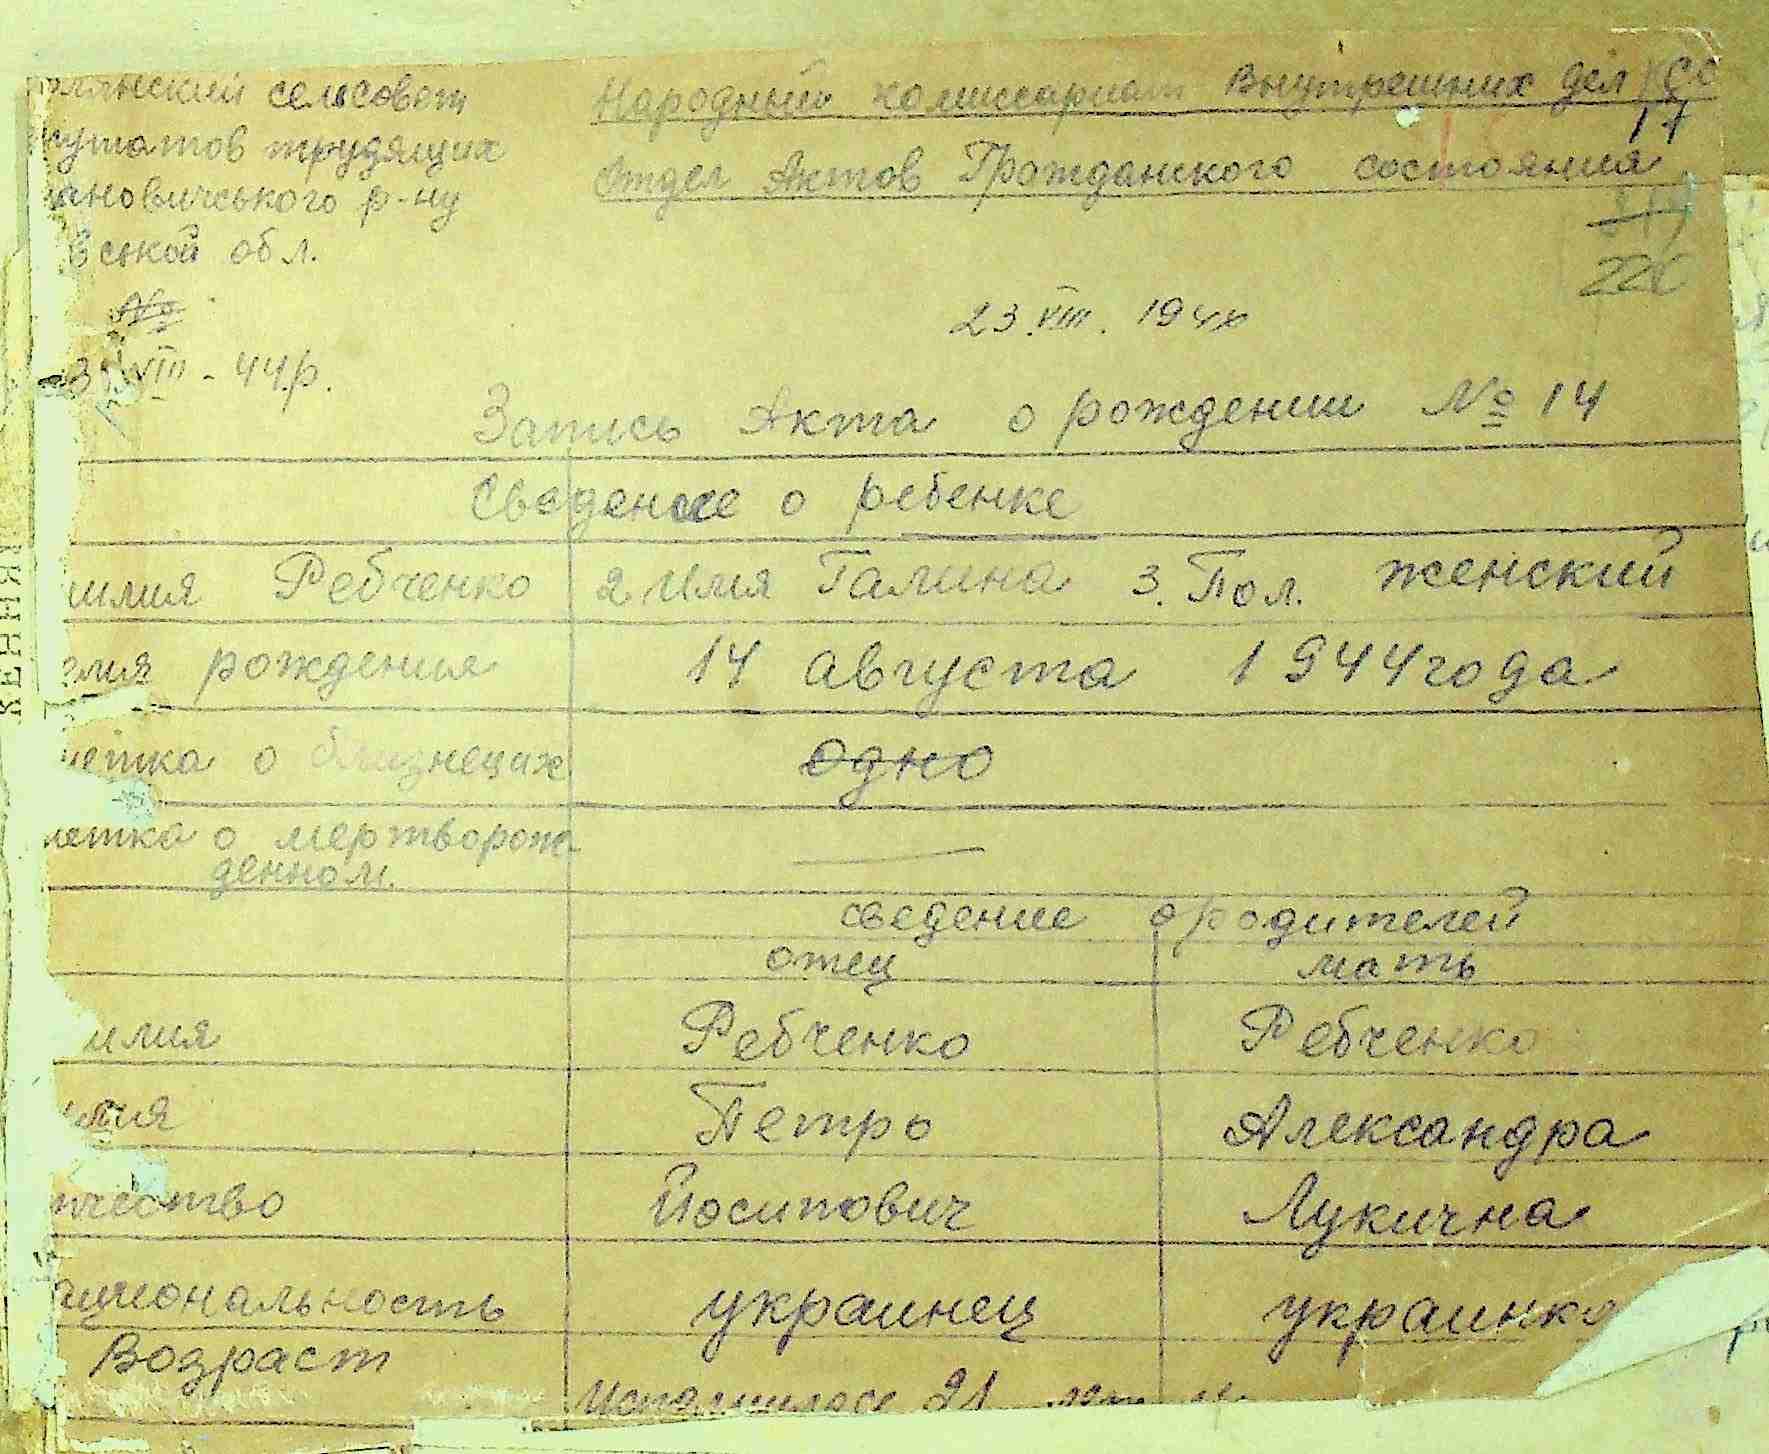 лянский сельсовет
путатов трудящих
ановичського р-ну
вской обл.
№
23 VIII - 44р.
Народный комиссариат Внутрешних дел УССР
17
Отдел Актов Грожданского состояния
226
23.VIII. 194
Запись Акта о рождении № 14
Сведение о ребенке
милия Ребченко 2 Имя Галина 3. Пол. женский
емя рождения 14 августа 1944 года
метка о близнецах одно
метка о мертворож
денном. —
сведение о родителей
отец мать
милия Ребченко Ребченко
имя Петро Александра
тчество Йосипович Лукична
ациональность украинец украинка
Возраст
Исполнилось 21